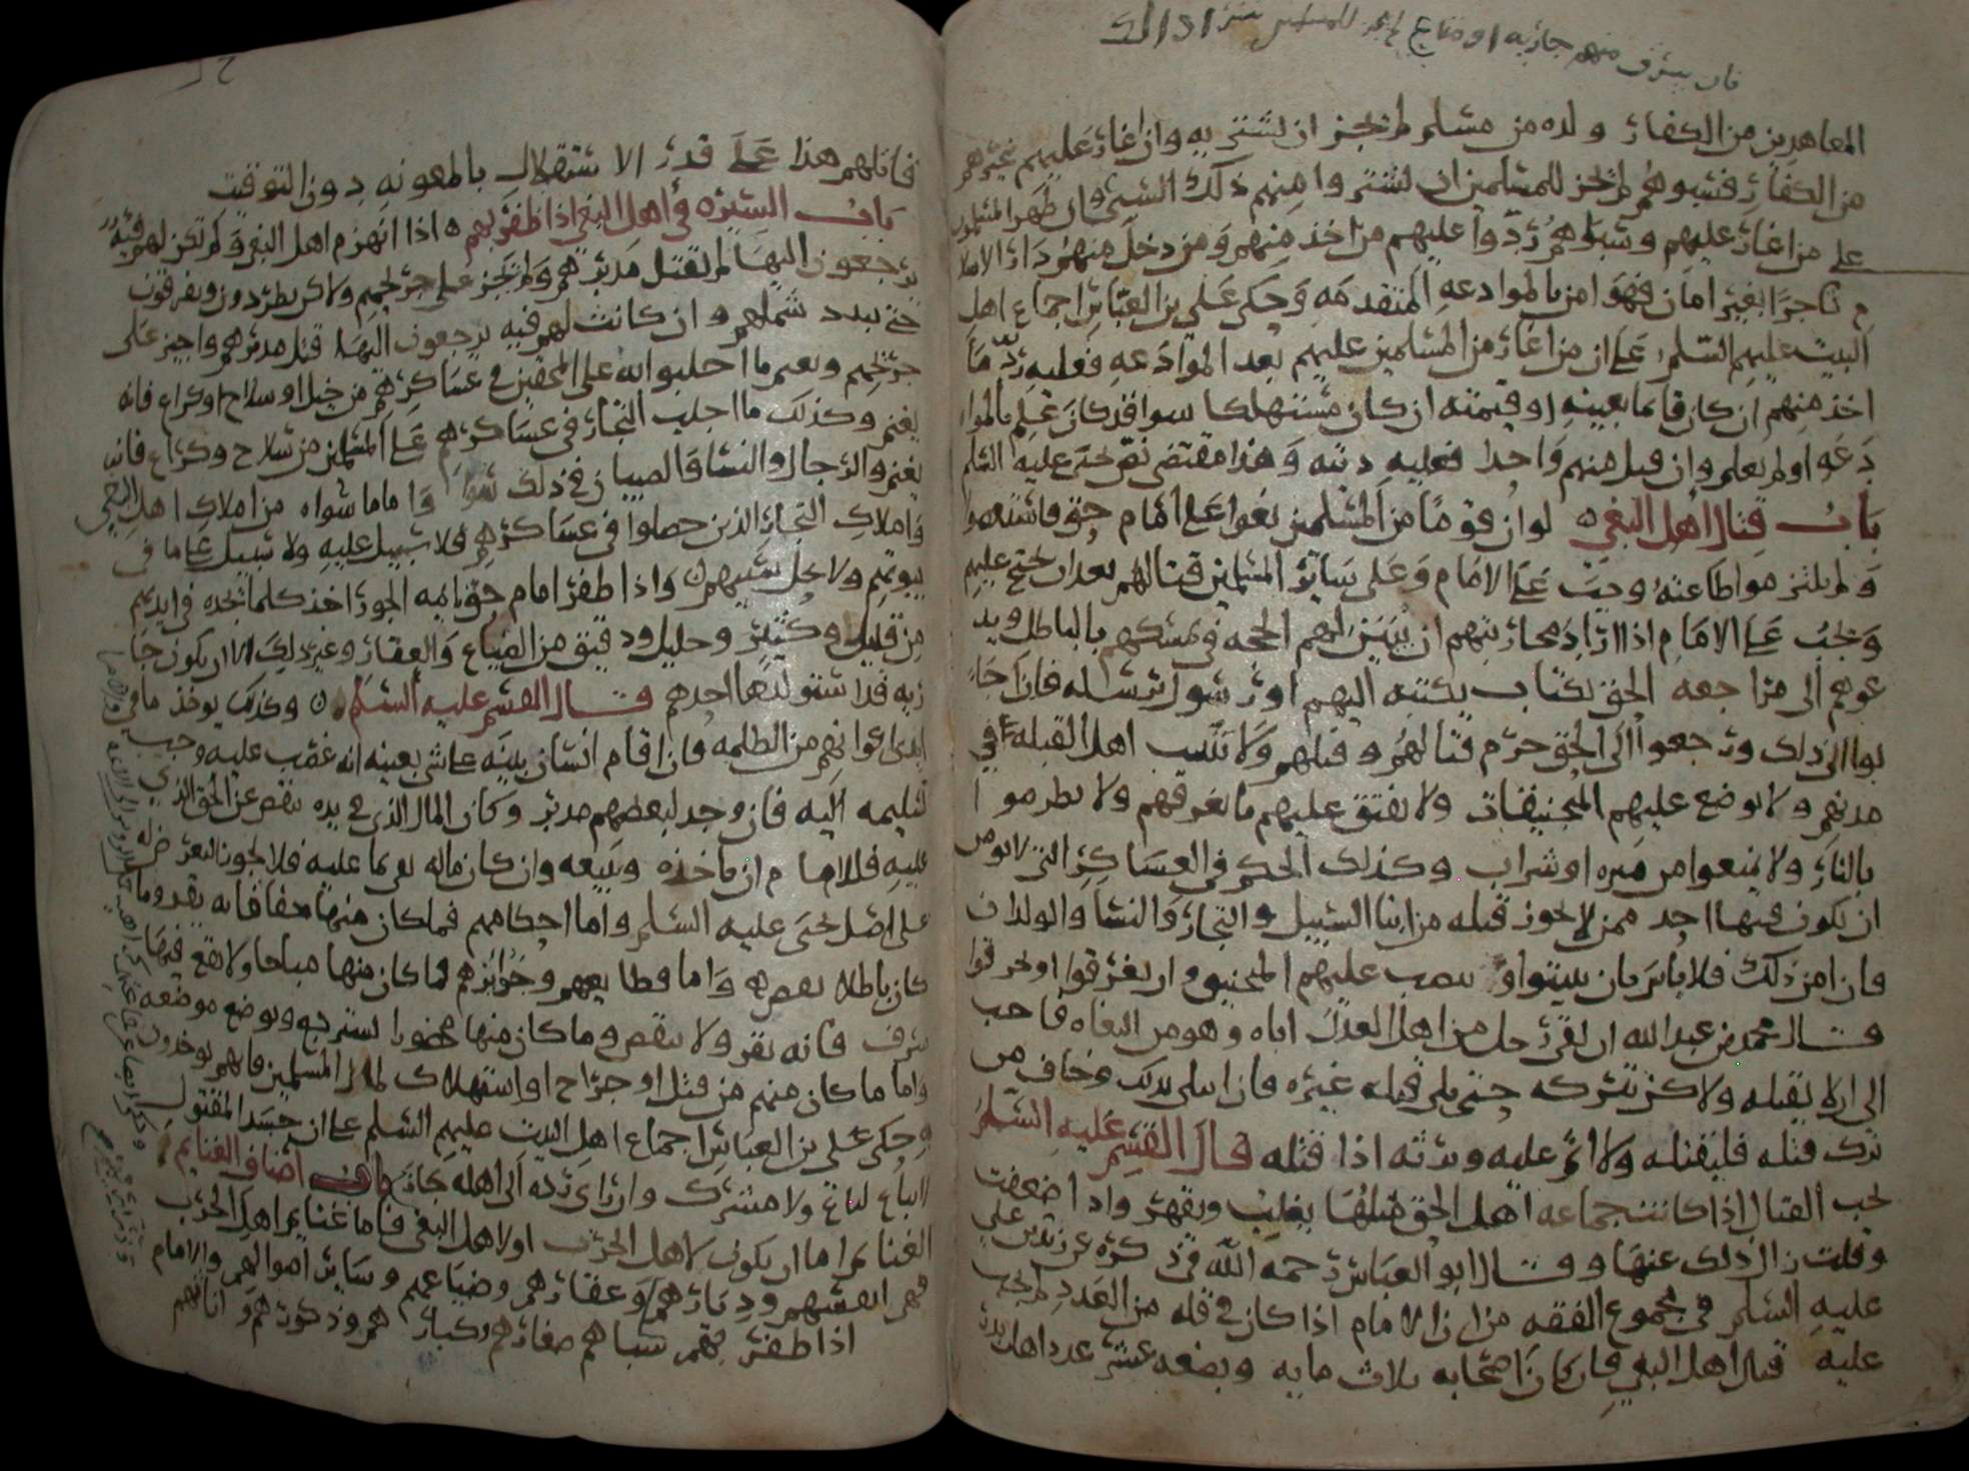 فان سرق منهم جاريه او متاع لم يجز للمسلمين شرا ذلك
المعاهدين من الكفار ولده من مسلم لم يجز ان يشترى به وان اغار عليهم غيرهم
من الكفار فسبوهم لم يجز للمسلمين ان يشتروا منهم ذلك السبي وان ظهر المسلمون
على من اغار عليهم وسبوهم ردوا عليهم من اخذ منهم ومن دخل منهم دار الاسلا
م تاجرا بغير امان فهو امن بالموادعه المتقدمه وحكى على بن العباس اجماع اهل
البيت عليهم السلم على ان من اغار من المسلمين عليهم بعد الموادعه فعليه رد ما
اخذ منهم ان كان قائما بعينه او قيمته ان كان مستهلكا سوا قد كان علم بالموا
دعه او لم يعلم وان قتل منهم واحدا فعليه ديته وهذا مقتضى نص يحيى عليه السلم
باب قتال اهل البغي لو ان قوما من المسلمين بغوا على امام حق فاستعصوا
ولم يلتزموا طاعته وجب على الامام وعلى ساير المسلمين قتالهم بعد ان يحتج عليهم
ويجب على الامام اذا اراد محاربتهم ان يبين لهم الحجه في تمسكهم بالباطل ويد
عوهم الى مراجعه الحق بكتاب يكتبه اليهم او رسول يرسله فان اجا
بوا الى ذلك ورجعوا الى الحق حرم قتالهم وقتلهم ولا يبيت اهل القبله في
مدنهم ولا يوضع عليهم المنجنيقات ولا يفتق عليهم ما يغرقهم ولا يضرموا
بالنار ولا يمنعوا من ميره او شراب وكذلك الحكم في العساكر التي لا يومن
ان يكون فيها احد ممن لا يجوز قتله من ابنا السبيل والتجار والنسا والولدان
فان امن ذلك فلا باس بان يبيتوا او ينصب عليهم المنجنيق او يغرقوا او يحرقوا
قال محمد بن عبدالله ان لقى رجل من اهل العدل اباه وهو من البغاه فاحب
الى ان لا يقتله ولاكن يتركه حتى يلي قتله غيره فان ابتلى بذلك وخاف من
ترك قتله فليقتله ولا اثم عليه ويرثه اذا قتله قال القسم عليه السلم
يجب القتال اذا كانت جماعه اهل الحق مثلها يغلب ويقهر واذا ضعفت
وقلت زال ذلك عنها وقال ابو العباس رحمه الله في ذكره عن زيد بن على
عليه السلم في مجموع الفقه من ان الامام اذا كان في قله من العدد لم يجب
عليه قتال اهل البغي فان كان اصحابه ثلاث مايه وبضعه عشر عدد اهل بدر
فاتلهم هذا على قدر الاستقلال بالمعونه دون التوقيت
باب السيره في اهل البغي اذا ظفر بهم اذا انهزم اهل البغي ولم تكن لهم فيه
يرجعون اليها لم يقتل مدبرهم ولم يجز على جريحهم ولاكن يطردون ويفرقون
حتى يبدد شملهم وان كانت لهم فيه يرجعون اليها قتل مدبرهم واجيز على
جريحهم ويغنم ما اجلبوا به على المحقين في عساكرهم من خيل او سلاح او كراع فانه
يغنم وكذلك ما اجلب التجار في عساكرهم على المسلمين من سلاح وكراع فانه
يغنم والرجال والنسا والصبيان في ذلك سوا واما ما سواه من املاك اهل البغي
واملاك التجار الذين حصلوا في عساكرهم فلا سبيل عليه ولا سبيل على ما في
بيوتهم ولا يحل سبيهم واذا ظفر امام حق بائمه الجور اخذ كلما يجده في ايديهم
من قليل وكثير وجليل ودقيق من الضياع والعقار وغير ذلك الا ان يكون جا
ريه قد استولدها احدهم قال القسم عليه السلم وكذلك يوخذ ما في
ايدى اعوانهم من الظلمه فان اقام انسان بينه على شي بعينه انه غصب عليه وجب
تسليمه اليه فان وجد لبعضهم مدبر وكان المال الذي في يده ينقص عن الحق الذي
عليه فللامام ان ياخذه ويبيعه وان كان ماله يفي بما عليه فلا يجوز التعرض له
على اصل يحيى عليه السلم واما احكامهم فما كان منها حقا فانه يقر وما
كان باطلا نقض واما قطايعهم وجوايزهم فما كان منها مباحا ولا تقع فيها
سرف فانه يقر ولا ينقض وما كان منها محضورا استرجع ويوضع موضعه
واما ما كان منهم من قتل او جراح او استهلاك لمال المسلمين فانهم يوخذون
به وحكى على بن العباس اجماع اهل البيت عليهم السلم على ان جسد المقتول
لا يباع لباغ ولا مشرك وان راى رده الى اهله جاز باب اصناف الغنايم
الغنايم اما ان يكون لاهل الحرب او لاهل البغي فاما غنايم اهل الحرب
فهى انفسهم وديارهم وعقارهم وضياعهم وساير اموالهم والامام
اذا ظفر بهم سباهم صغارهم وكبارهم وذكورهم واناثهم